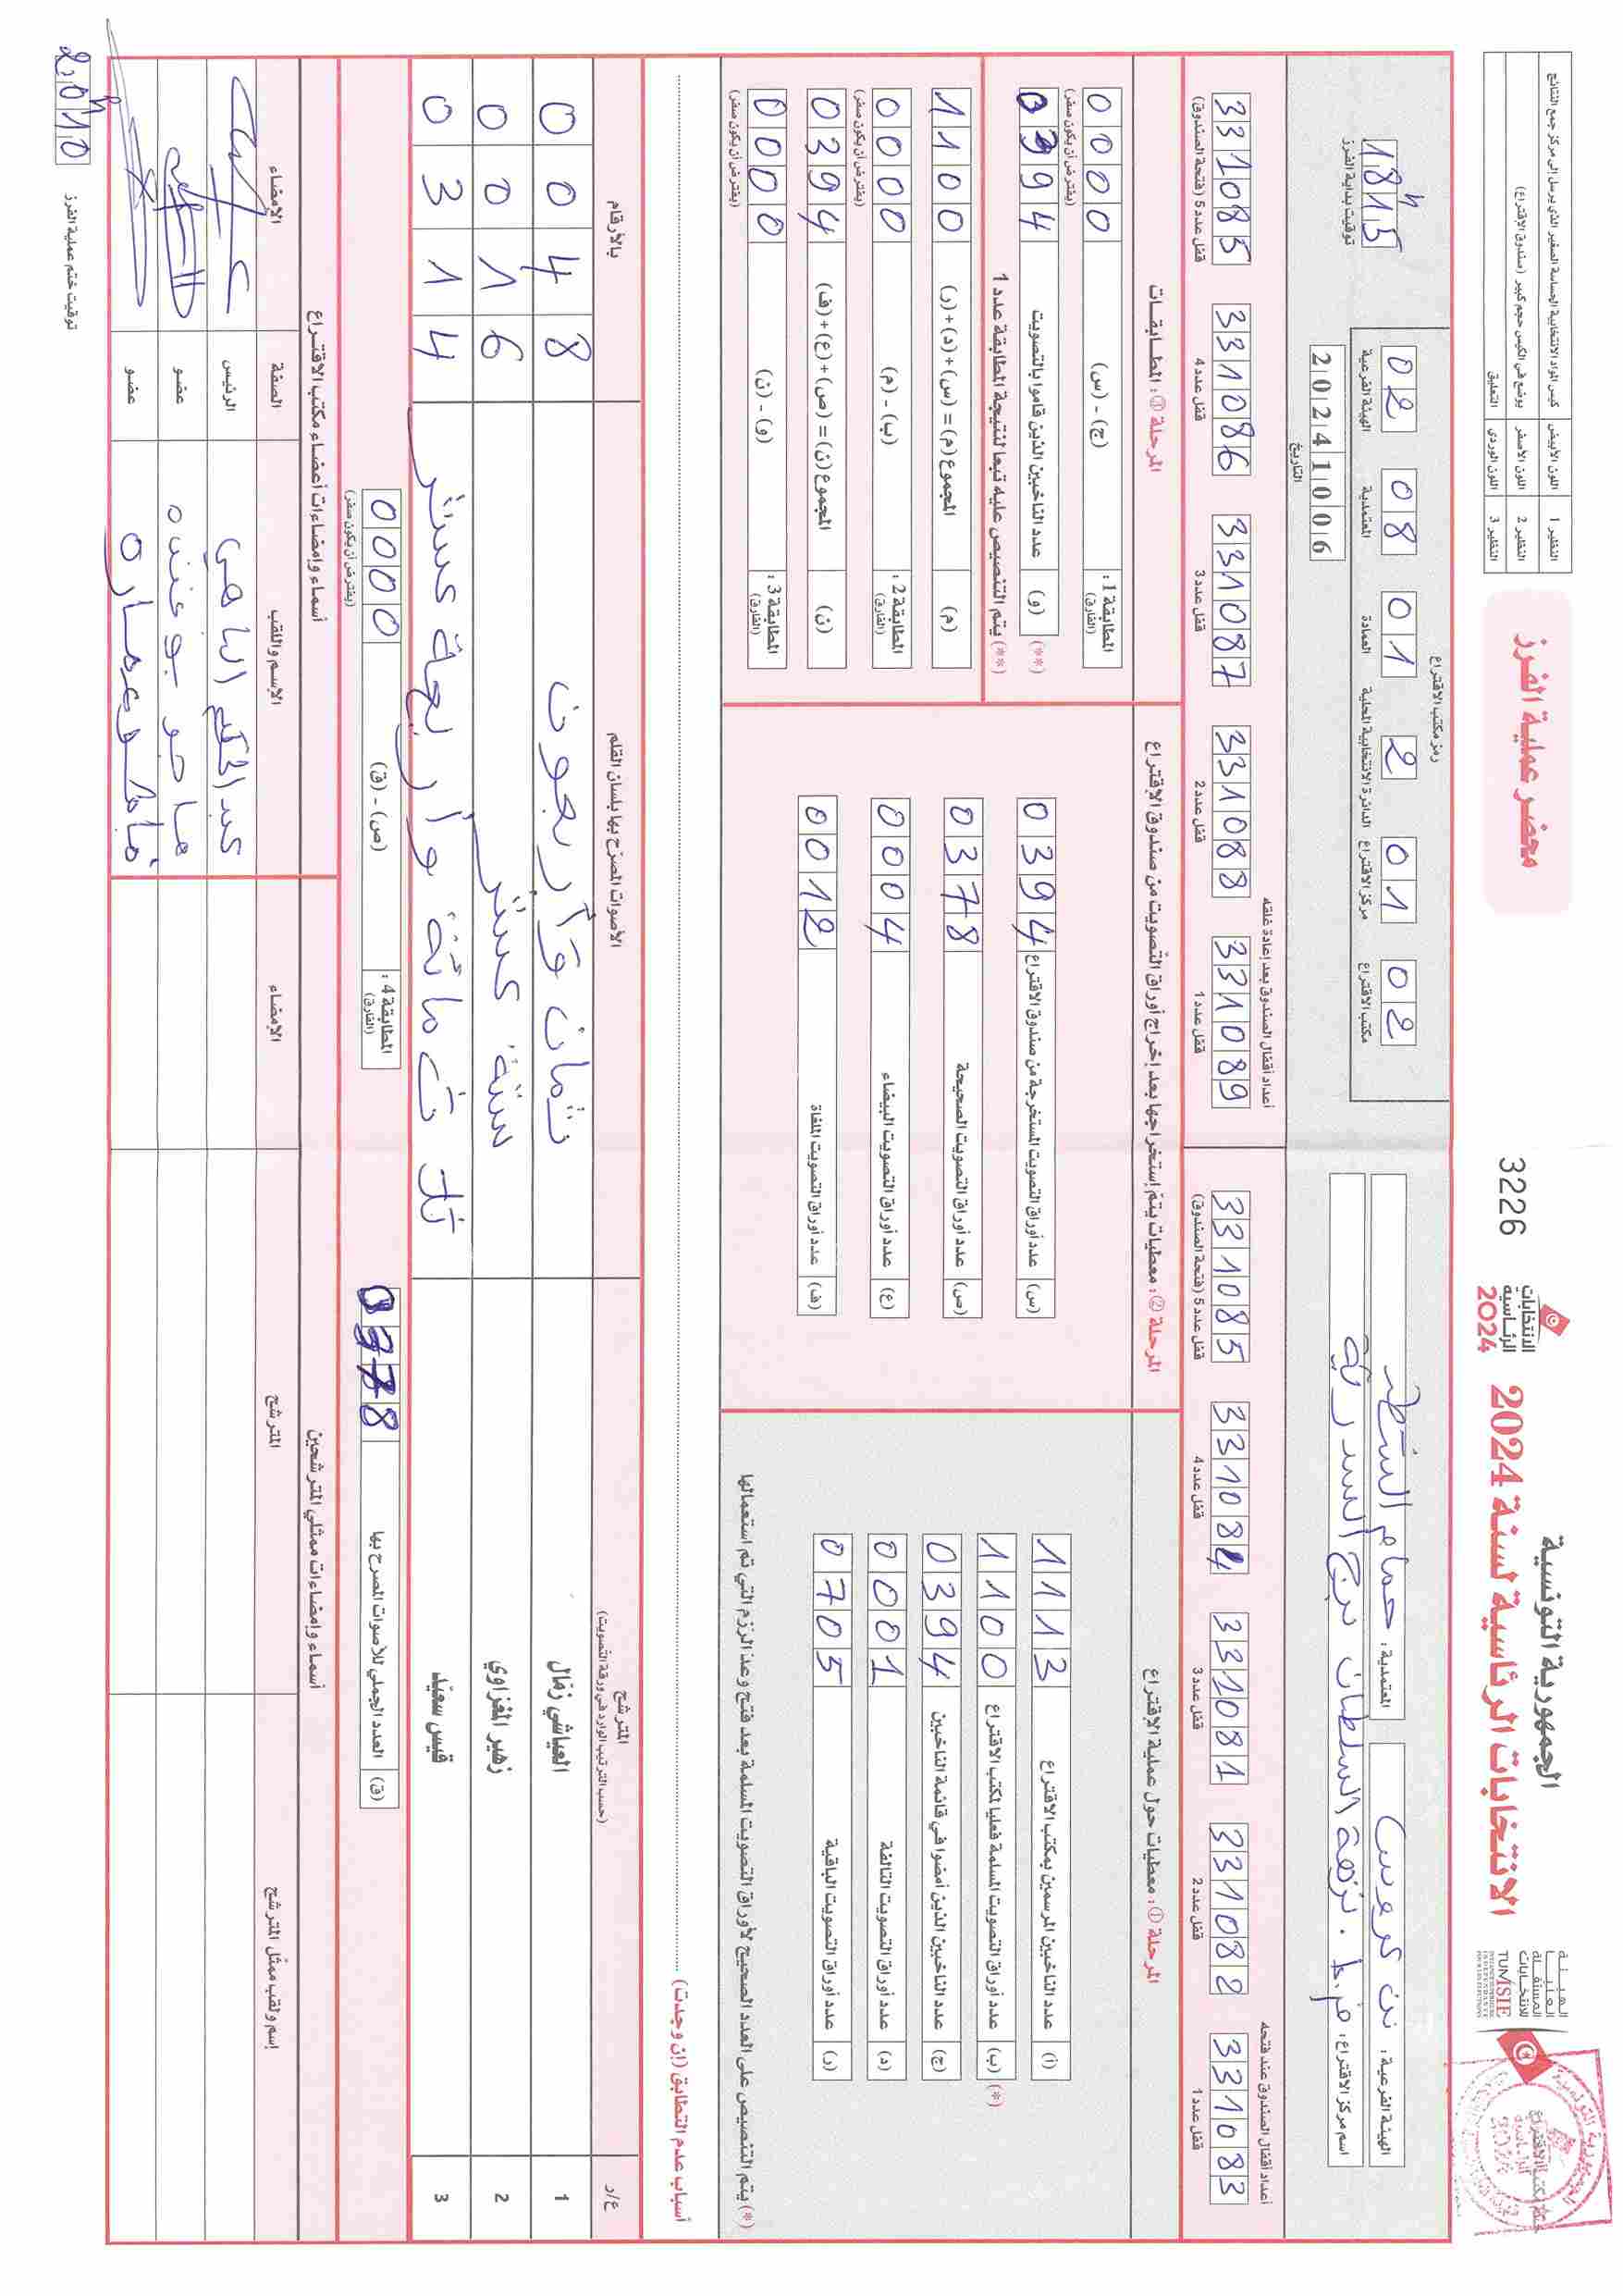 الجمهورية التونسية
الانتخابات الرئاسية لسنة 2024
الهيئة
العليا
المستقلة
للانتخابات
TUNISIE
الانتخابات
الرئاسية
2024
3226
محضر عملية الفرز
النظير 1 اللون الأبيض كيس المواد الانتخابية الحساسة الصغير الذي يرسل إلى مركز جمع النتائج
النظير 2 اللون الأصفر يوضع في الكيس حجم كبير (صندوق الاقتراع)
النظير 3 اللون الوردي التعليق
الهيئة الفرعية: بن عروس المعتمدية: حمام الشط
اسم مركز الاقتراع: م.إ. نزهة السلطان برج السدرية
رمز مكتب الاقتراع
02 08 01 2 01 02
الهيئة الفرعية المعتمدية العمادة الدائرة الانتخابية المحلية مركز الاقتراع مكتب الاقتراع
20241006
التاريخ
18h15
توقيت بداية الفرز
أعداد أقفال الصندوق عند فتحه
331083 331082 331081 331084 331085
قفل عدد 1 قفل عدد 2 قفل عدد 3 قفل عدد 4 قفل عدد 5 (فتحة الصندوق)
أعداد أقفال الصندوق بعد إعادة غلقه
331089 331088 331087 331086 331085
قفل عدد 1 قفل عدد 2 قفل عدد 3 قفل عدد 4 قفل عدد 5 (فتحة الصندوق)
المرحلة ①: معطيات حول عملية الاقتراع
(أ) عدد الناخبين المرسمين بمكتب الاقتراع 1113
(ب) عدد أوراق التصويت المسلمة فعليا لمكتب الاقتراع 1100 (*)
(ج) عدد الناخبين الذين أمضوا في قائمة الناخبين 0394
(د) عدد أوراق التصويت التالفة 0001
(ر) عدد أوراق التصويت الباقية 0705
(*) يتم التنصيص على العدد الصحيح لأوراق التصويت المسلمة بعد فتح وعد الرزم التي تم استعمالها
المرحلة ②: معطيات يتم إستخراجها بعد إخراج أوراق التصويت من صندوق الاقتراع
(س) عدد أوراق التصويت المستخرجة من صندوق الاقتراع 0394
(ص) عدد أوراق التصويت الصحيحة 0378
(ع) عدد أوراق التصويت البيضاء 0004
(ف) عدد أوراق التصويت الملغاة 0012
المرحلة ③: المطابقات
المطابقة 1: (الفارق) (ج) - (س) 0000
(يفترض أن يكون صفر)
(**) (و) عدد الناخبين الذين قاموا بالتصويت 0394
(**) يتم التنصيص عليه تبعا لنتيجة المطابقة عدد 1
(م) المجموع (م) = (س) + (د) + (ر) 1100
المطابقة 2: (الفارق) (ب) - (م) 0000
(يفترض أن يكون صفر)
(ن) المجموع (ن) = (ص) + (ع) + (ف) 0394
المطابقة 3: (الفارق) (و) - (ن) 0000
(يفترض أن يكون صفر)
أسباب عدم التطابق (إن وجدت)
ع/د المترشح (حسب الترتيب الوارد في ورقة التصويت) الأصوات المصرح بها بلسان القلم بالأرقام
1 العياشي زمّال ثمان وأربعون 0048
2 زهير المغزاوي ستة عشر 0016
3 قيس سعيّد ثلاث مائة وأربعة عشر 0314
(ق) العدد الجملي للأصوات المصرح بها 0378
المطابقة 4: (الفارق) (ص) - (ق) 0000
(يفترض أن يكون صفر)
أسماء وإمضاءات ممثلي المترشحين أسماء وإمضاءات أعضاء مكتب الاقتراع
إسم ولقب ممثل المترشح المترشح الإمضاء الإسم واللقب الصفة الإمضاء
الرئيس
عضو
عضو
توقيت ختم عملية الفرز
20h10